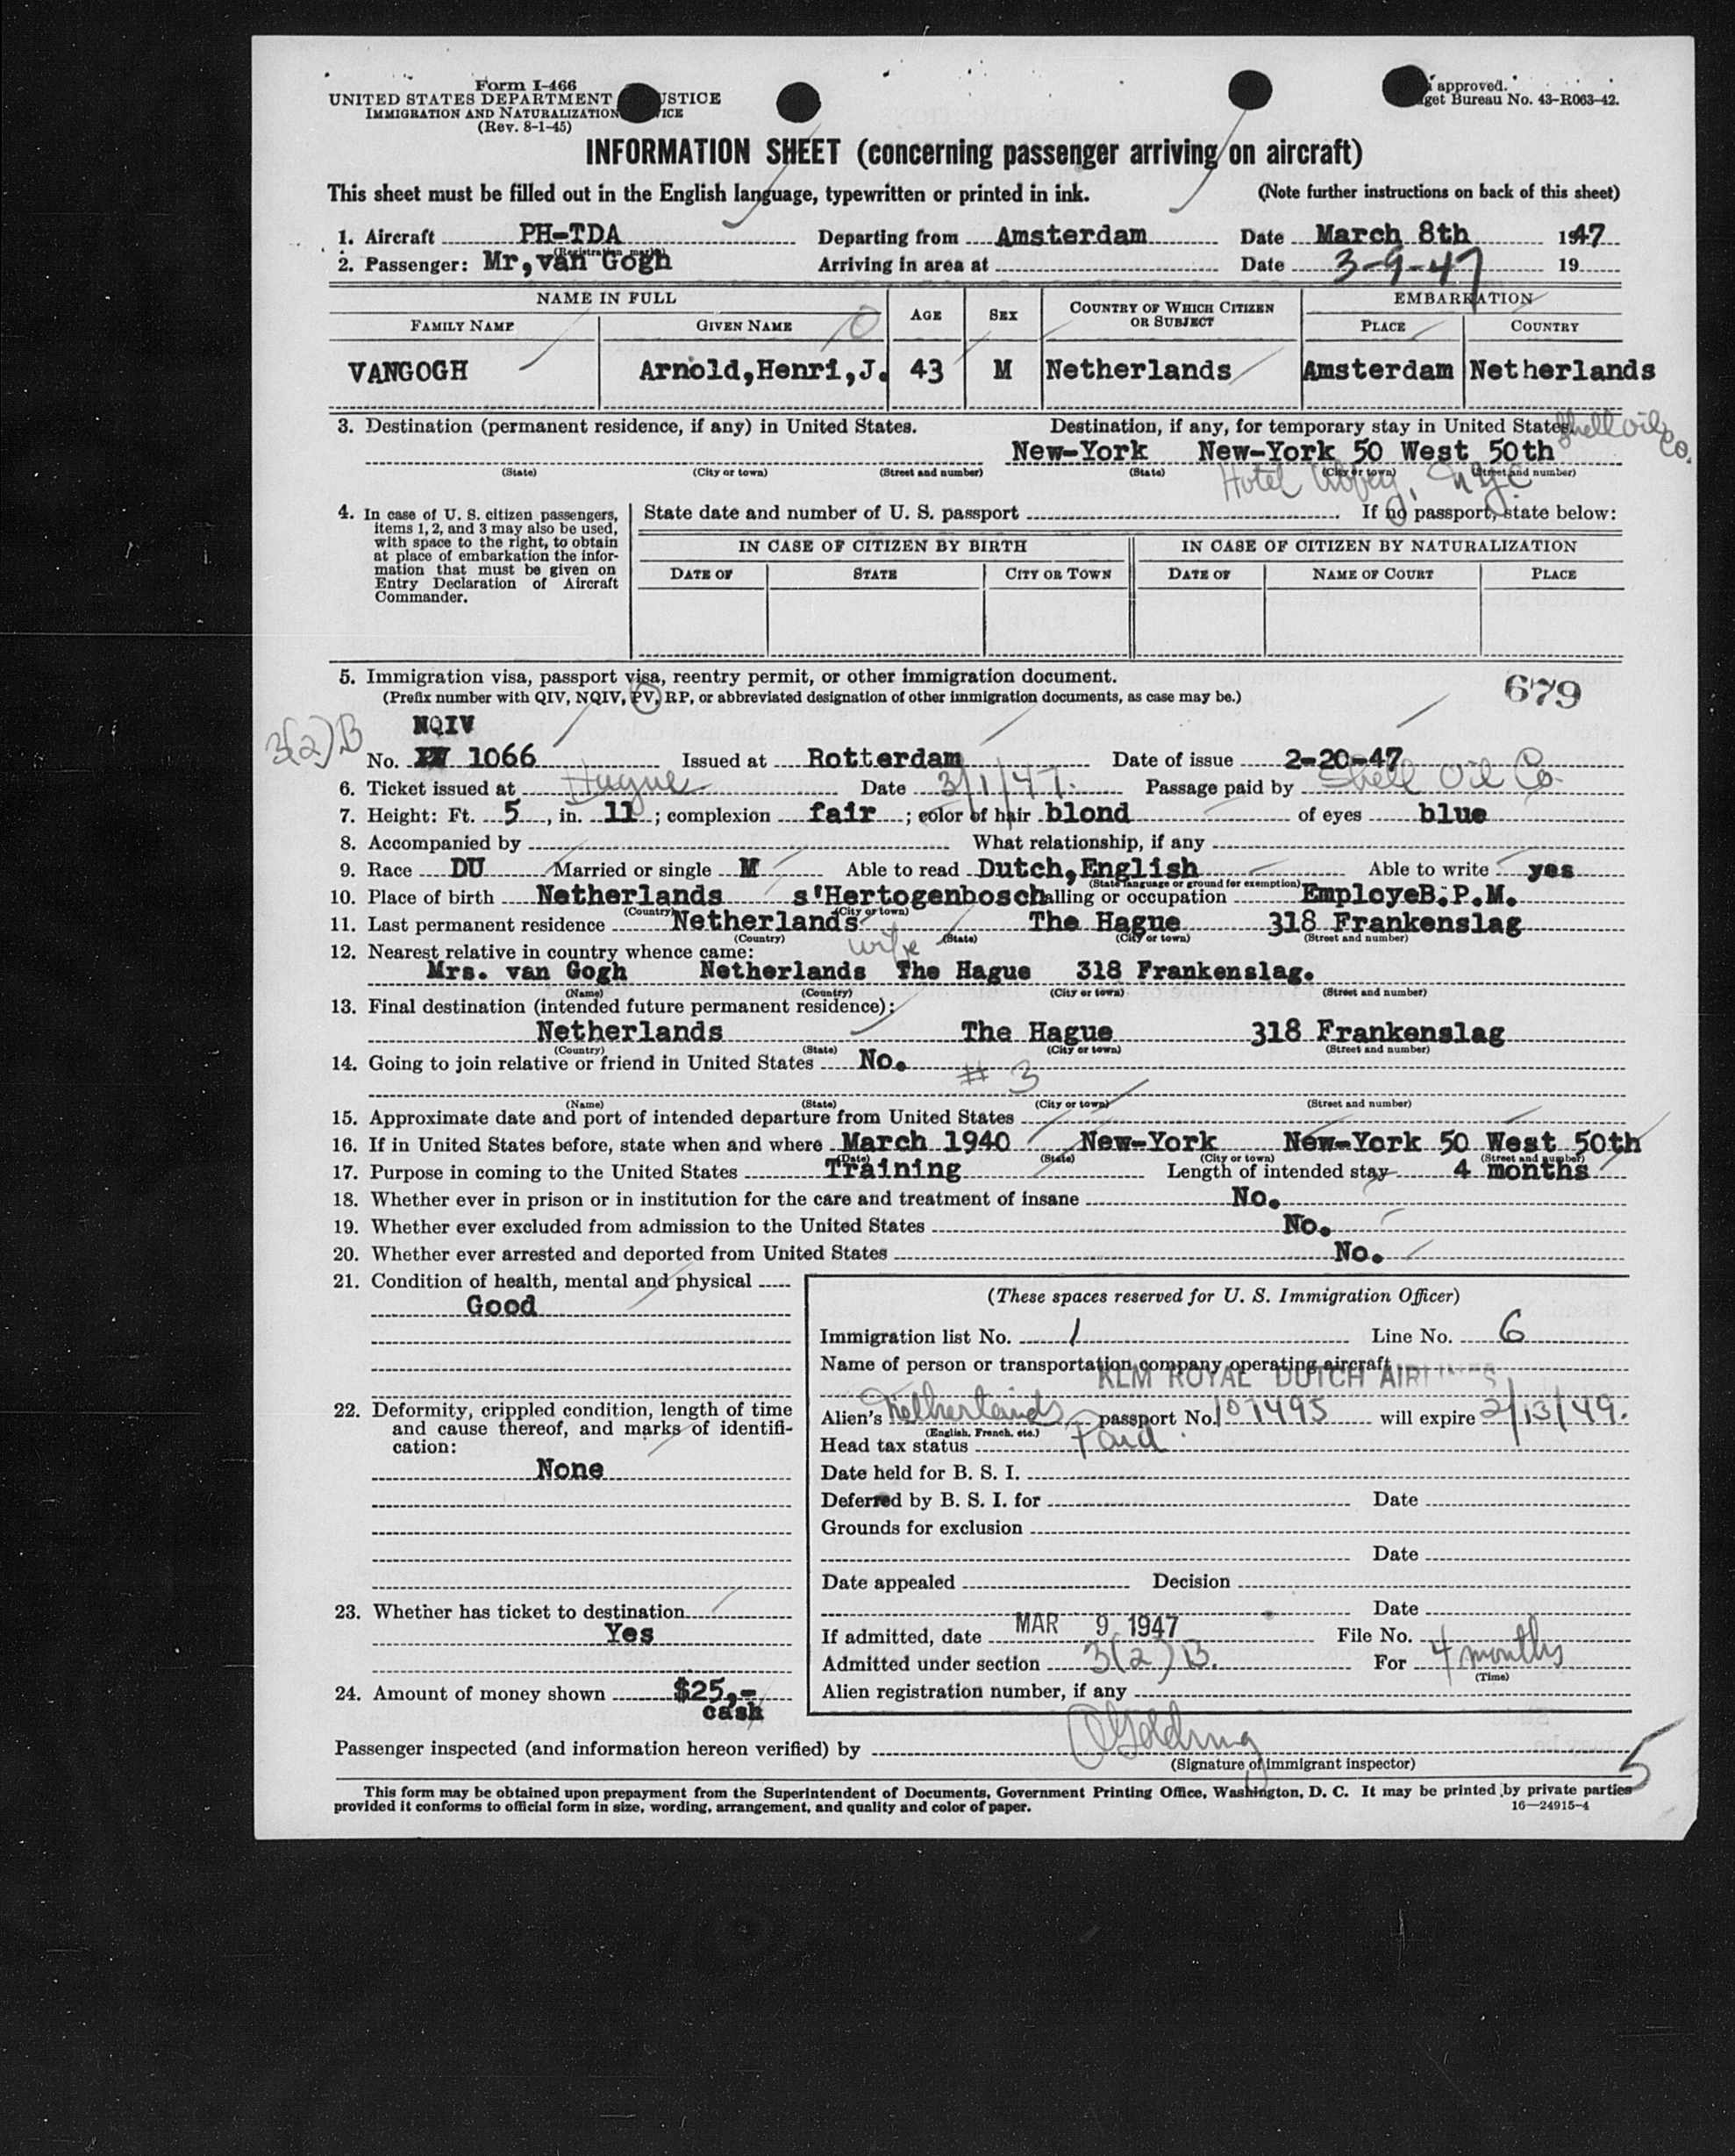 Form I-466
UNITED STATES DEPARTMENT USTICE
IMMIGRATION AND NATURALIZATION VICE
(Rev. 8-1-45)
approved.
get Bureau No. 43-R063-42.
INFORMATION SHEET (concerning passenger arriving on aircraft)
This sheet must be filled out in the English language, typewritten or printed in ink. (Note further instructions on back of this sheet)
1. Aircraft PH-TDA Departing from Amsterdam Date March 8th 1947
(Registration mark)
2. Passenger: Mr, van Gogh Arriving in area at Date 3-9-47 19
NAME IN FULL AGE SEX COUNTRY OF WHICH CITIZEN OR SUBJECT EMBARKATION
FAMILY NAME GIVEN NAME PLACE COUNTRY
VANGOGH Arnold,Henri,J. 43 M Netherlands Amsterdam Netherlands
3. Destination (permanent residence, if any) in United States. Destination, if any, for temporary stay in United States. Shell Oil Co.
New-York New-York 50 West 50th
(State) (City or town) (Street and number) (State) (City or town) (Street and number)
Hotel NYC
4. In case of U. S. citizen passengers, items 1, 2, and 3 may also be used, with space to the right, to obtain at place of embarkation the information that must be given on Entry Declaration of Aircraft Commander.
State date and number of U. S. passport If no passport, state below:
IN CASE OF CITIZEN BY BIRTH IN CASE OF CITIZEN BY NATURALIZATION
DATE OF STATE CITY OR TOWN DATE OF NAME OF COURT PLACE
5. Immigration visa, passport visa, reentry permit, or other immigration document.
(Prefix number with QIV, NQIV, PV, RP, or abbreviated designation of other immigration documents, as case may be.)
679
3(2)B NQIV
No. 1066 Issued at Rotterdam Date of issue 2-20-47
6. Ticket issued at Hague Date 3/1/47. Passage paid by Shell Oil Co.
7. Height: Ft. 5, in. 11; complexion fair; color of hair blond of eyes blue
8. Accompanied by What relationship, if any
9. Race DU Married or single M Able to read Dutch,English Able to write yes
(State language or ground for exemption)
10. Place of birth Netherlands s'Hertogenbosch alling or occupation EmployeB.P.M.
(Country) (City or town)
11. Last permanent residence Netherlands The Hague 318 Frankenslag
(Country) (State) (City or town) (Street and number)
12. Nearest relative in country whence came: wife
Mrs. van Gogh Netherlands The Hague 318 Frankenslag.
(Name) (Country) (City or town) (Street and number)
13. Final destination (intended future permanent residence):
Netherlands The Hague 318 Frankenslag
(Country) (State) (City or town) (Street and number)
14. Going to join relative or friend in United States No.
# 3
(Name) (State) (City or town) (Street and number)
15. Approximate date and port of intended departure from United States
16. If in United States before, state when and where March 1940 New-York New-York 50 West 50th
(Date) (State) (City or town) (Street and number)
17. Purpose in coming to the United States Training Length of intended stay 4 months
18. Whether ever in prison or in institution for the care and treatment of insane No.
19. Whether ever excluded from admission to the United States No.
20. Whether ever arrested and deported from United States No.
21. Condition of health, mental and physical
Good
22. Deformity, crippled condition, length of time and cause thereof, and marks of identification:
None
23. Whether has ticket to destination
Yes
24. Amount of money shown $25,-
cash
(These spaces reserved for U. S. Immigration Officer)
Immigration list No. 1 Line No. 6
Name of person or transportation company operating aircraft
KLM ROYAL DUTCH AIRLINES
Alien's Netherlands passport No. 107495 will expire 2/13/49.
(English, French, etc.)
Head tax status Paid
Date held for B. S. I.
Deferred by B. S. I. for Date
Grounds for exclusion
Date
Date appealed Decision
Date
If admitted, date MAR 9 1947 File No.
Admitted under section 3(2)B. For 4 months
(Time)
Alien registration number, if any
Passenger inspected (and information hereon verified) by
(Signature of immigrant inspector)
5
This form may be obtained upon prepayment from the Superintendent of Documents, Government Printing Office, Washington, D. C. It may be printed by private parties
provided it conforms to official form in size, wording, arrangement, and quality and color of paper. 16—24915-4